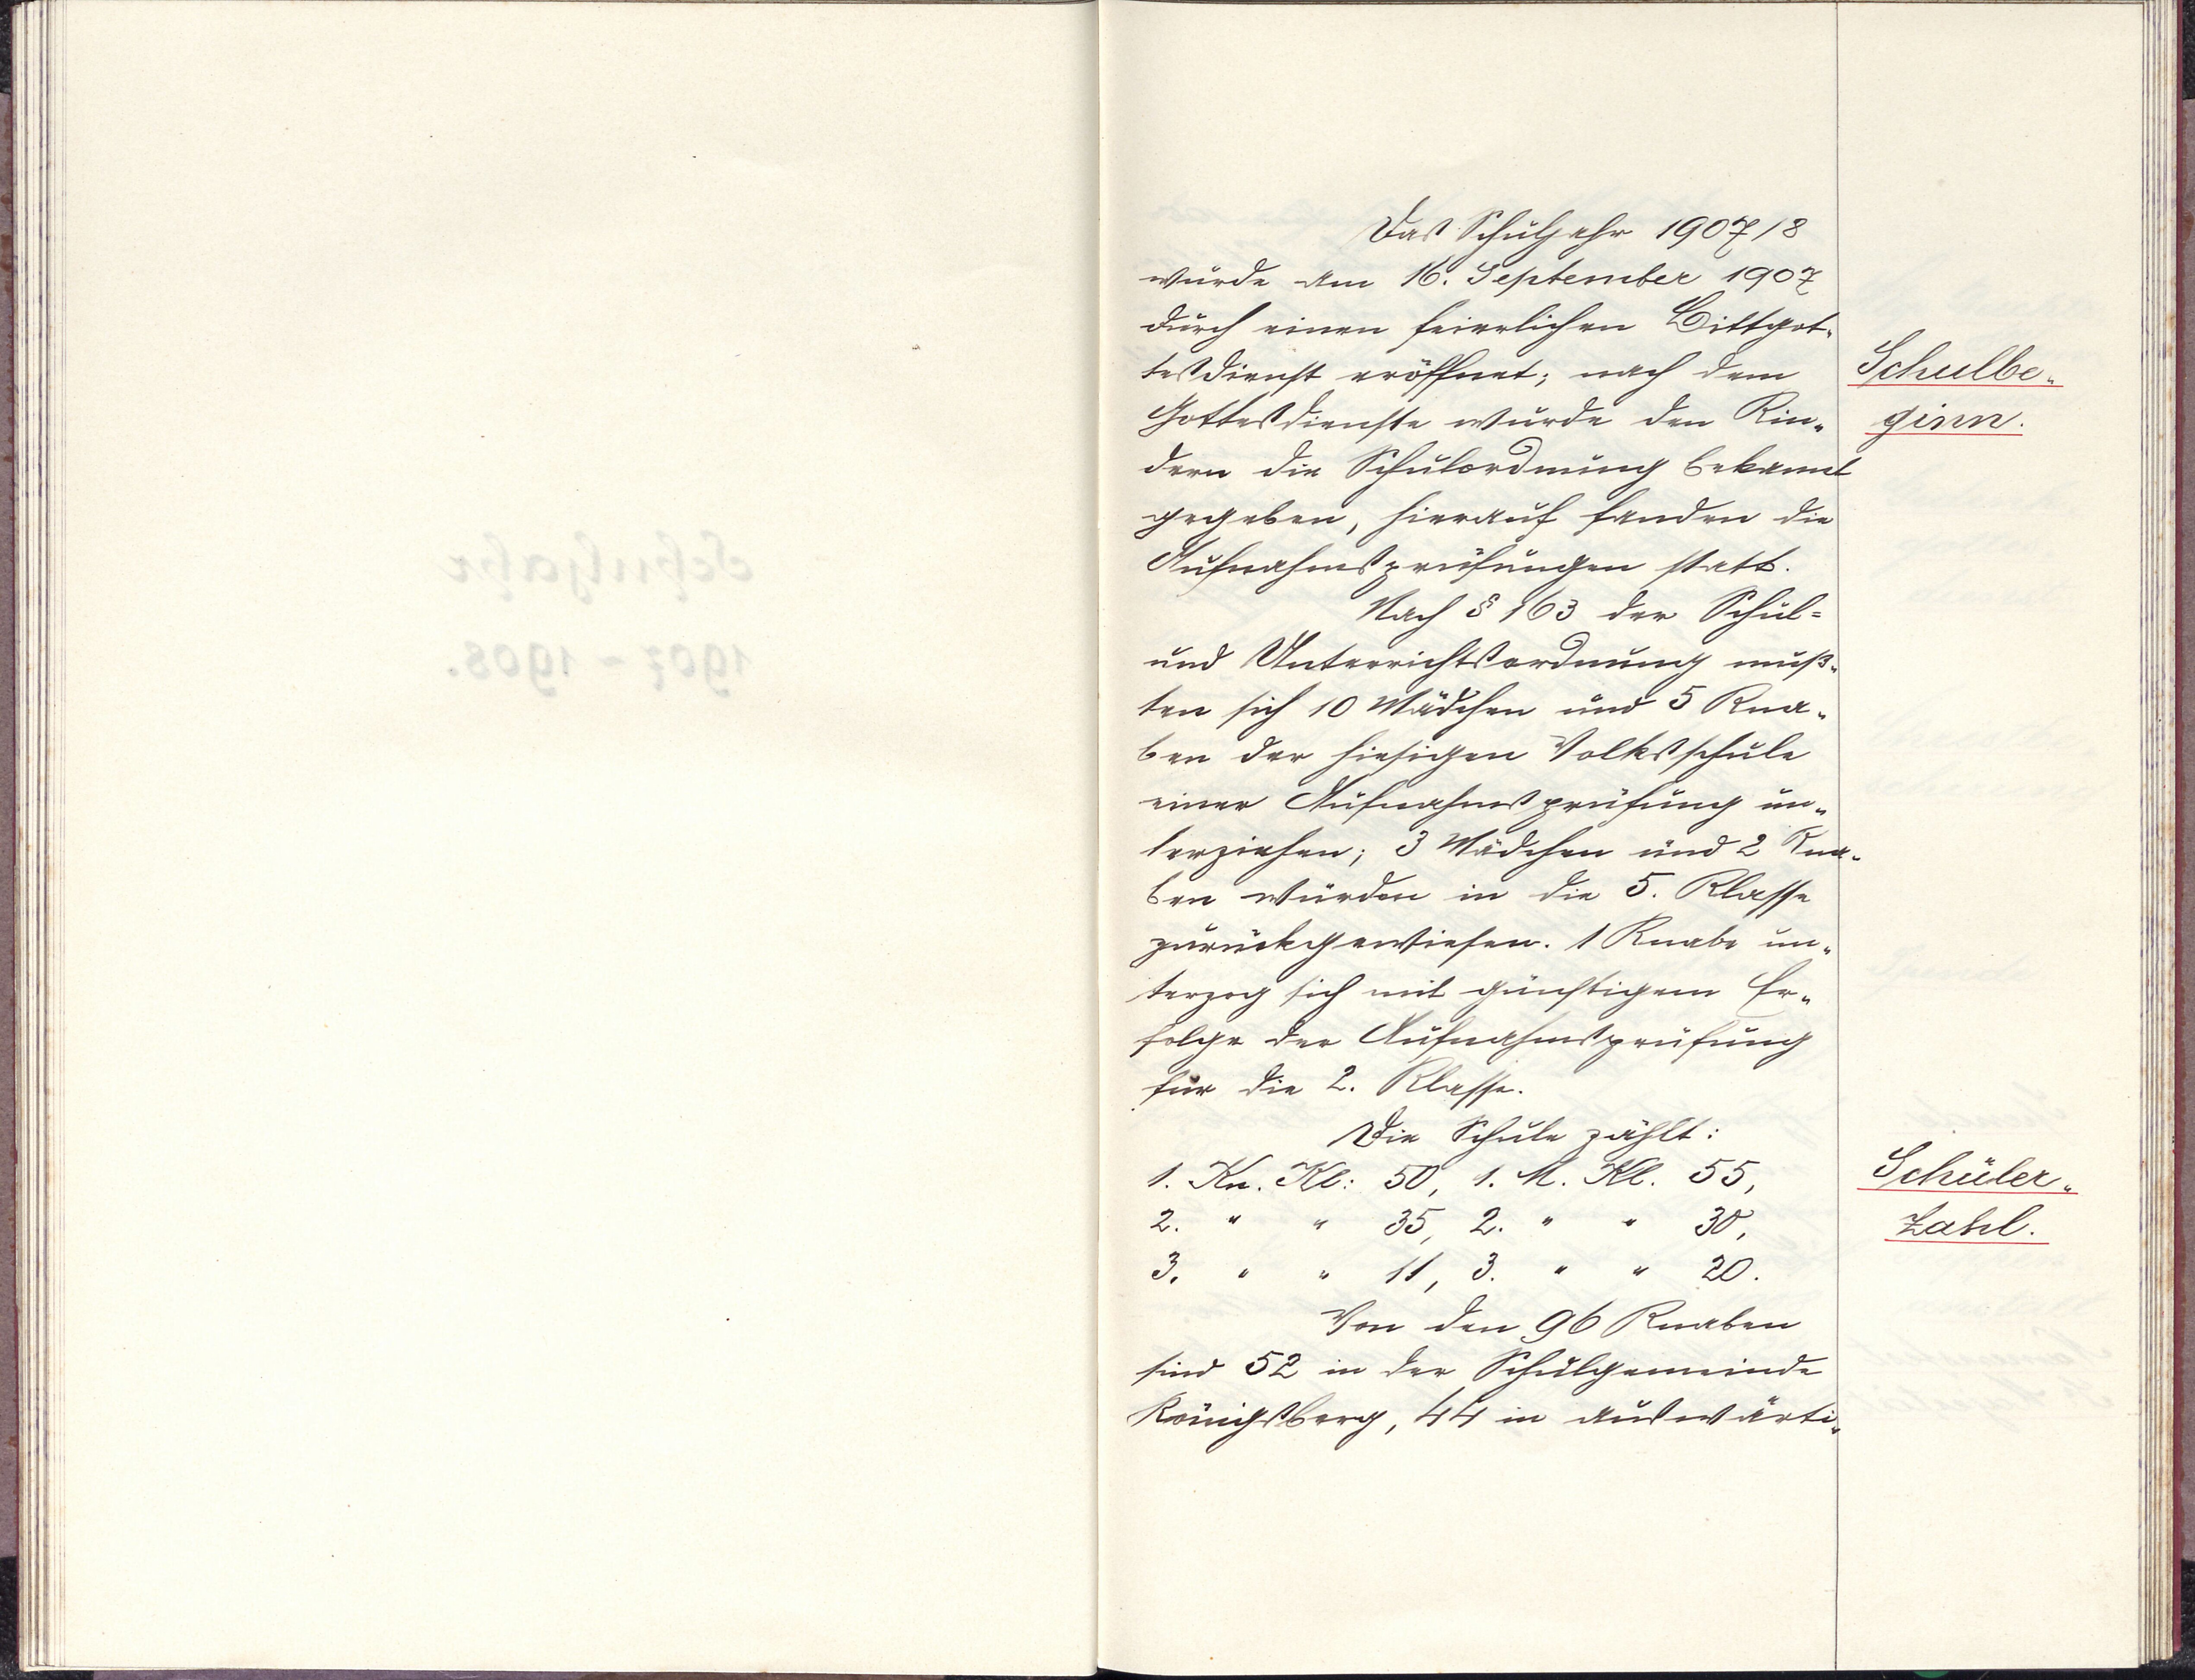 Das Schuljahr 1907/8
wurde am 16. September 1907
durch einen feierlichen Bittgot-
tesdienst eröffnet; nach dem
Gottesdienste wurde den Kin-
dern die Schulordnung bekannt
gegeben, hierauf fanden die
Aufnahmsprüfungen statt.
Schulbe-
ginn.
Nach § 163 der Schul-
und Unterrichtsordnung muß-
ten sich 10 Mädchen und 5 Kna-
ben der hiesigen Volksschule
einer Aufnahmsprüfung un-
terziehen; 3 Mädchen und 2 Kna-
ben wurden in die 5. Klasse
zurückgewiesen. 1 Knabe un-
terzog sich mit günstigem Er-
folge der Aufnahmsprüfung
für die 2. Klasse.
Die Schule zählt:
1. Kn. Kl: 50, 1. M. Kl. 55,
2. " " 35, 2. " " 30,
3. " " 11, 3. " " 20.
Schüler-
zahl.
Von den 96 Knaben
sind 52 in der Schulgemeinde
Königsberg, 44 in auswärti-